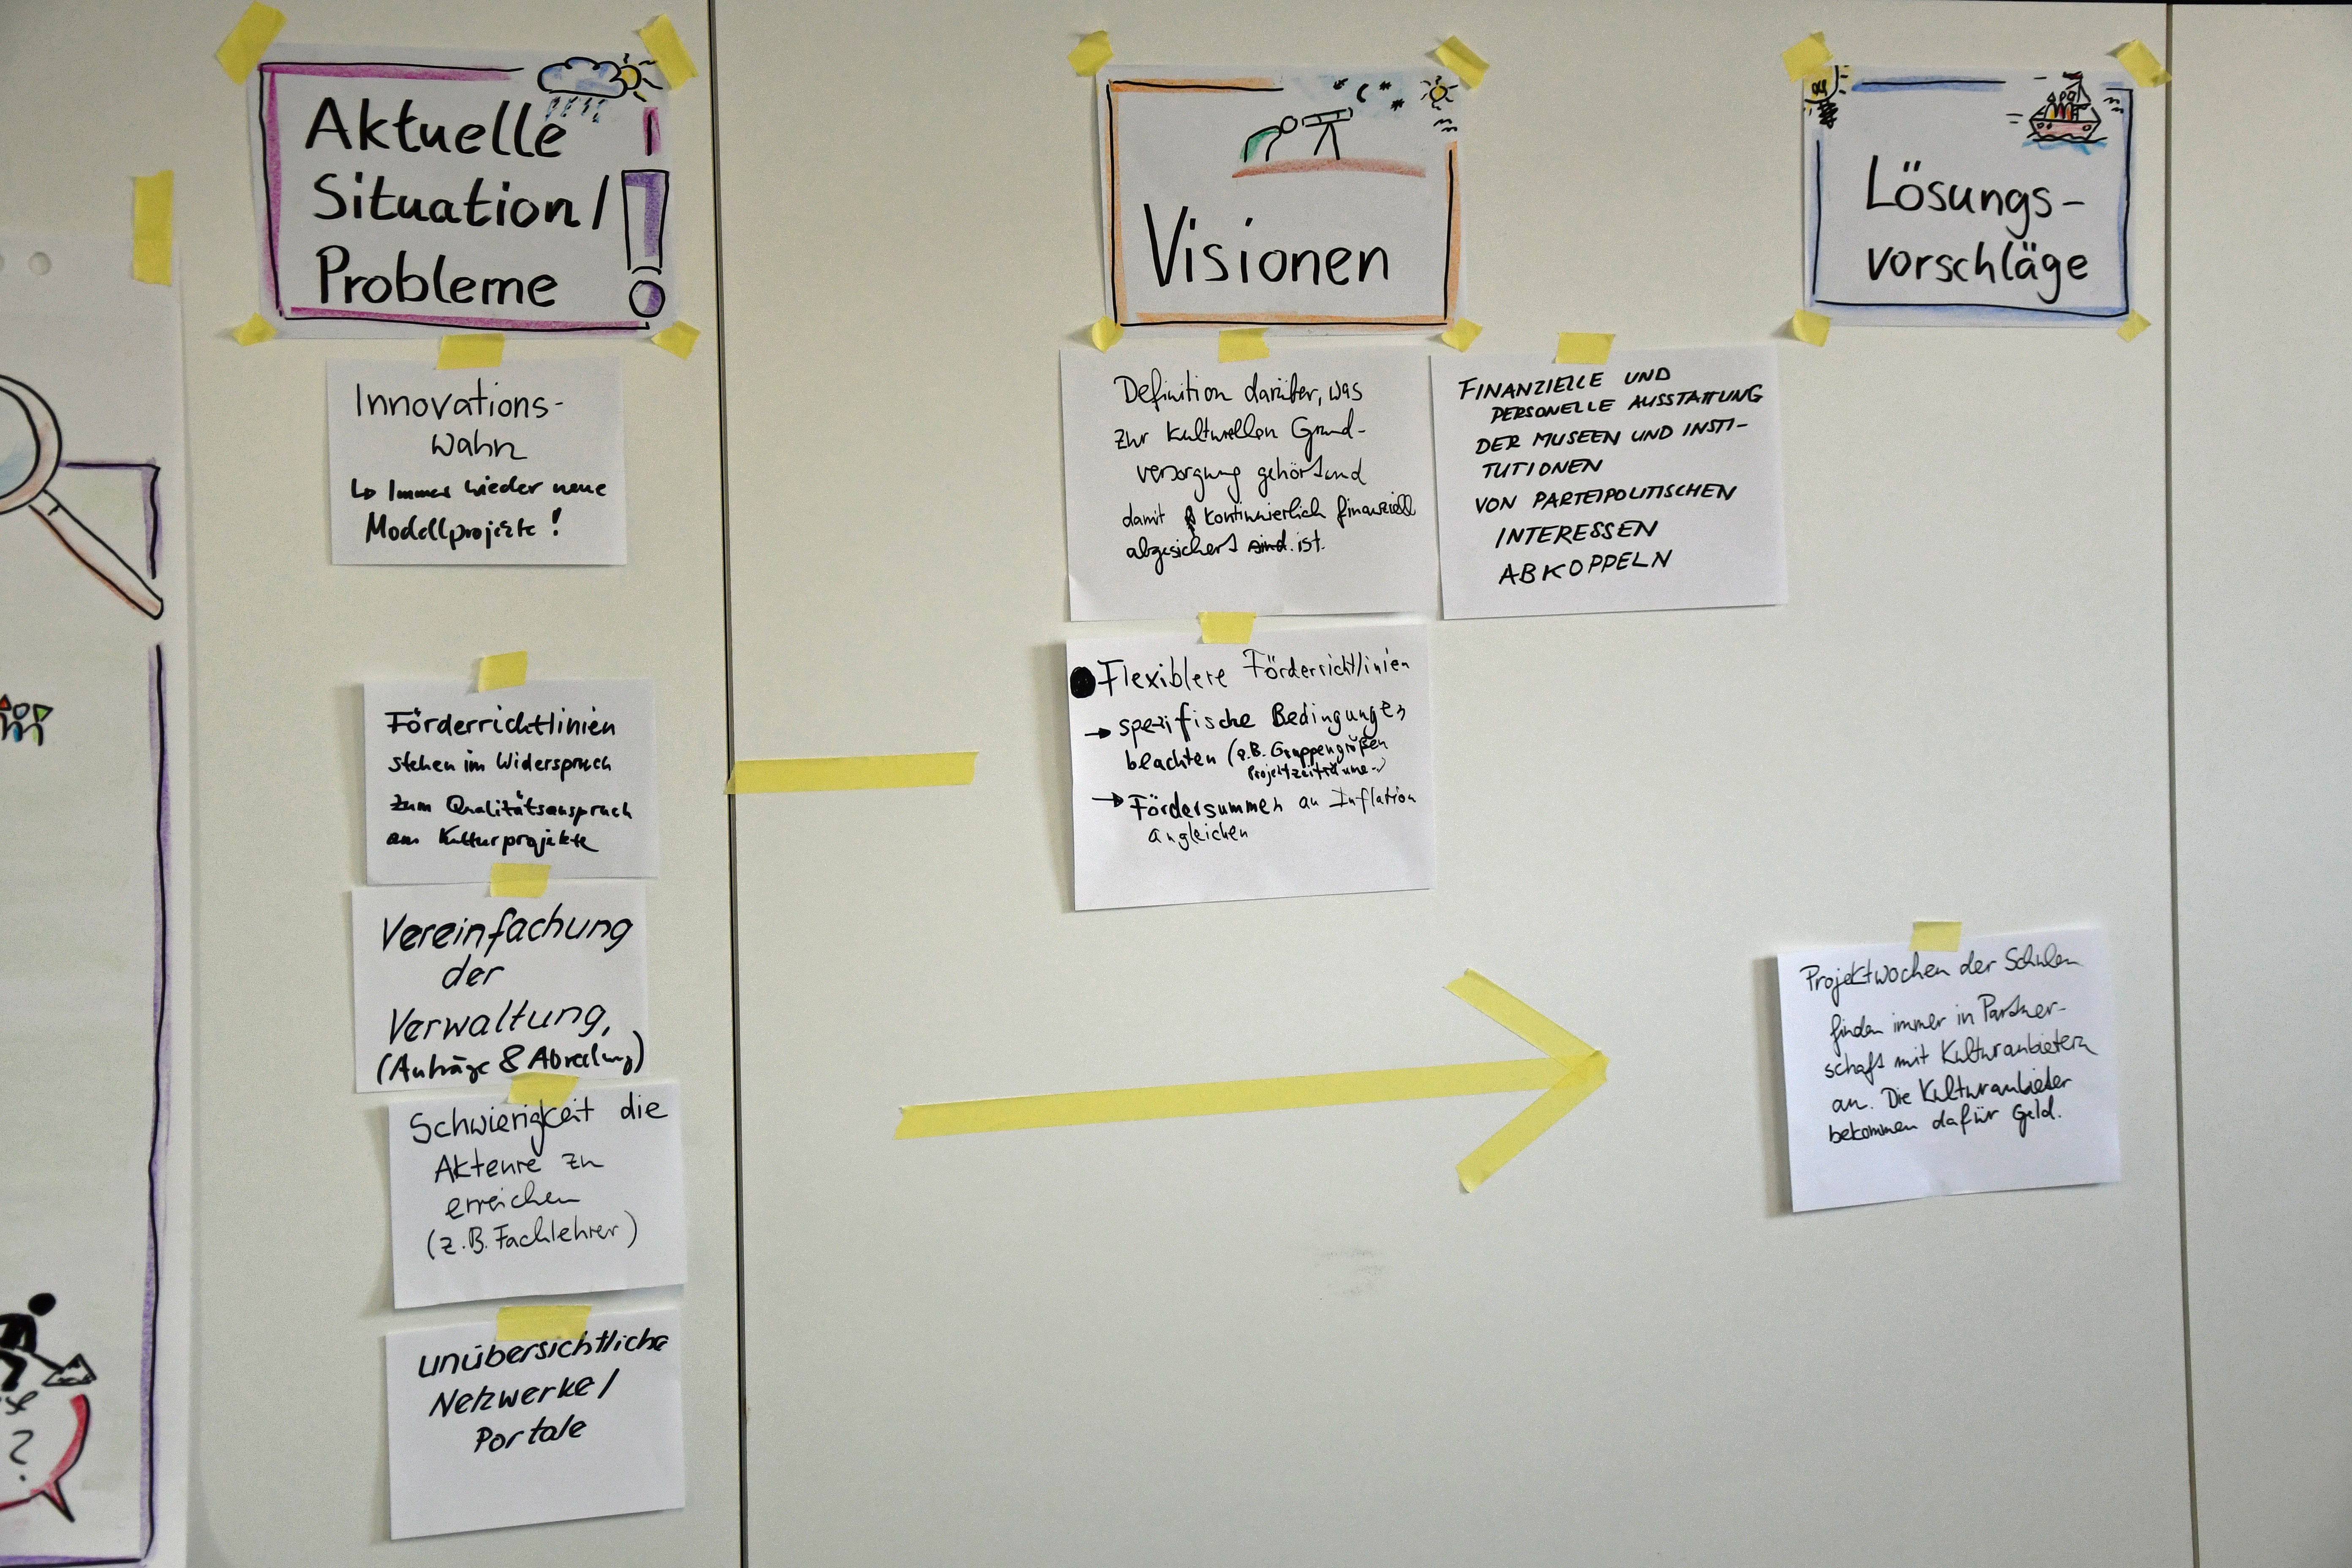 Aktuelle
Situation/
Probleme
Innovations-
wahn
↳ Immer wieder neue
Modellprojekte!
Förderrichtlinien
stehen im Widerspruch
zum Qualitätsanspruch
an Kulturprojekte
Vereinfachung
der
Verwaltung,
(Anträge & Abrechnung)
Schwierigkeit die
Akteure zu
erreichen
(z.B. Fachlehrer)
unübersichtliche
Netzwerke/
Portale
Visionen
Definition darüber, was
zur kulturellen Grund-
versorgung gehört und
damit kontinuierlich finanziell
abgesichert sind. ist.
FINANZIELLE UND
PERSONELLE AUSSTATTUNG
DER MUSEEN UND INSTI-
TUTIONEN
VON PARTEIPOLITISCHEN
INTERESSEN
ABKOPPELN
Flexiblere Förderrichtlinien
→ spezifische Bedingungen
beachten (z.B. Gruppengrößen
Projektzeiträume..)
→ Fördersummen an Inflation
angleichen
Lösungs-
vorschläge
Projektwochen der Schulen
finden immer in Partner-
schaft mit Kulturanbietern
an. Die Kulturanbieter
bekommen dafür Geld.
?